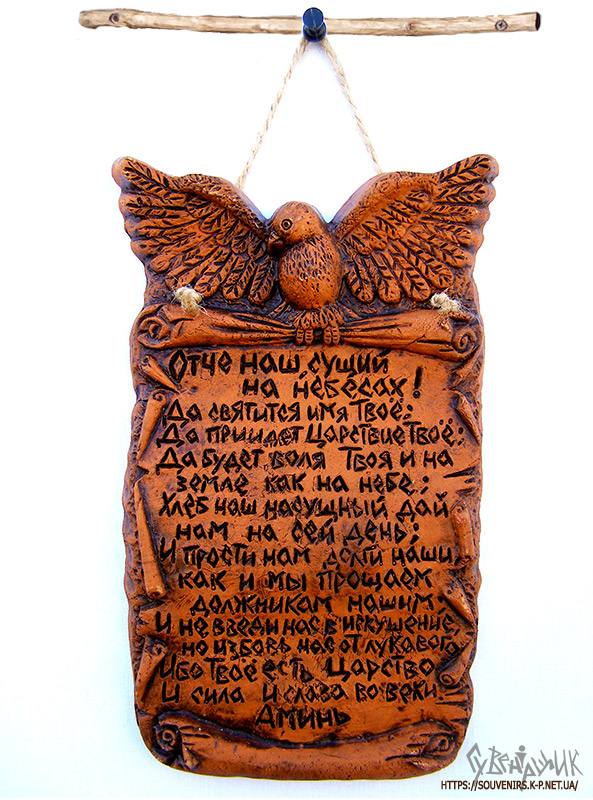 Отче наш сущий
на небесах!
Да святится имя Твоё;
Да приидет Царствие Твоё;
Да будет воля Твоя и на
земле как на небе;
Хлеб наш насущный дай
нам на сей день;
И прости нам долги наши,
как и мы прощаем
должникам нашим,
И не введи нас в искушение,
но изборь нас от лукавого
Ибо Твоё есть Царство
И сила и слава во веки.
Аминь
Сувенірчик
HTTPS://SOUVENIRS.K-P.NET.UA/